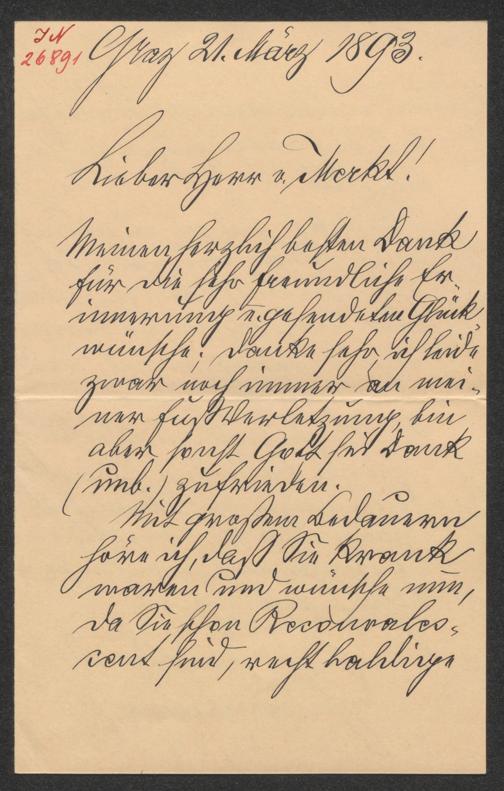 IN
26891
Graz 21. März 1893.
Lieber Herr v. Merkl!
Meinen herzlich besten Dank
für die sehr freundliche Er-
innerung u. gesendeten Glück
wünsche; danke sehr, ich leide
zwar noch immer an mei-
ner Fußverletzung, bin
aber sonst Gott sei Dank
(unb.) zufrieden.
Mit großem Bedauern
höre ich, daß Sie krank
waren und wünsche nun,
da Sie schon Reconvales-
cent sind, recht baldige